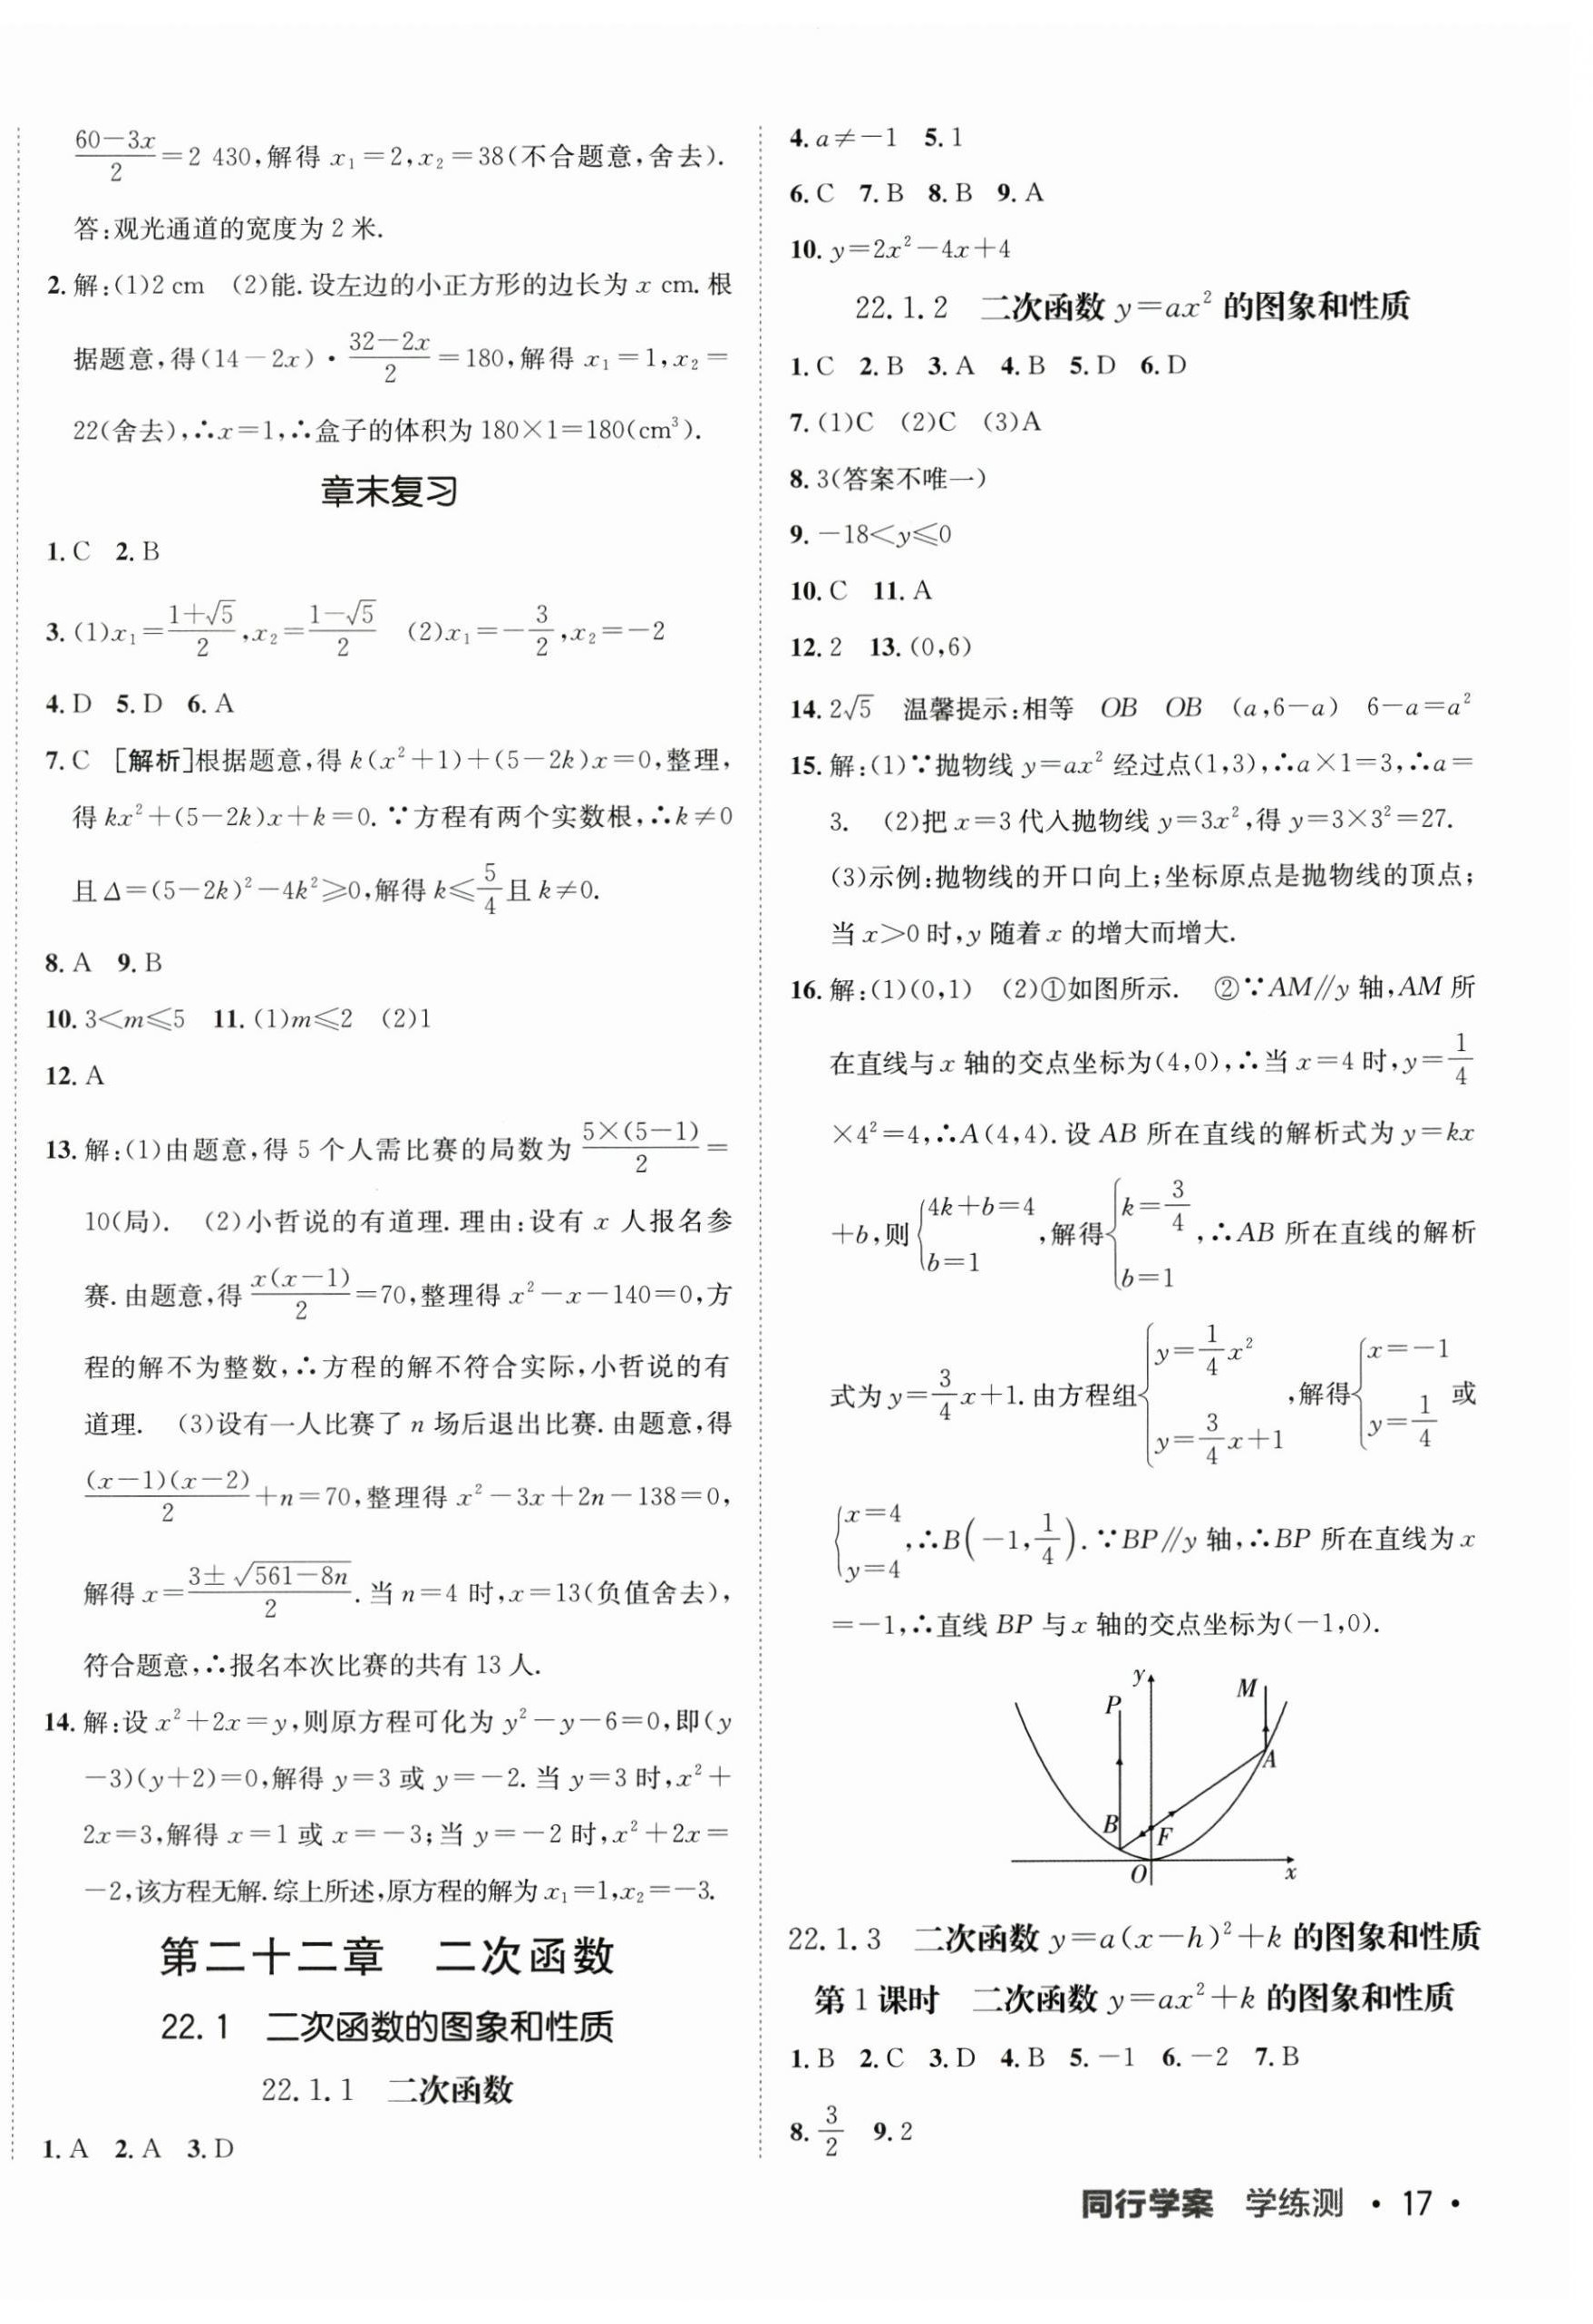 (60-3x)/2=2 430,解得 x₁=2,x₂=38(不合题意,舍去).
答:观光通道的宽度为 2 米.
2. 解:(1)2 cm (2)能. 设左边的小正方形的边长为 x cm. 根
据题意,得(14-2x)·(32-2x)/2=180,解得 x₁=1,x₂=
22(舍去),∴x=1,∴盒子的体积为 180×1=180(cm³).
章末复习
1. C 2. B
3. (1)x₁=(1+√5)/2,x₂=(1-√5)/2 (2)x₁=-3/2,x₂=-2
4. D 5. D 6. A
7. C [解析]根据题意,得 k(x²+1)+(5-2k)x=0,整理,
得 kx²+(5-2k)x+k=0. ∵方程有两个实数根,∴k≠0
且 Δ=(5-2k)²-4k²≥0,解得 k≤5/4且 k≠0.
8. A 9. B
10. 3<m≤5 11. (1)m≤2 (2)1
12. A
13. 解:(1)由题意,得 5 个人需比赛的局数为 5×(5-1)/2=
10(局). (2)小哲说的有道理. 理由:设有 x 人报名参
赛. 由题意,得 x(x-1)/2=70,整理得 x²-x-140=0,方
程的解不为整数,∴方程的解不符合实际,小哲说的有
道理. (3)设有一人比赛了 n 场后退出比赛. 由题意,得
(x-1)(x-2)/2+n=70,整理得 x²-3x+2n-138=0,
解得 x=(3±√(561-8n))/2. 当 n=4 时,x=13(负值舍去),
符合题意,∴报名本次比赛的共有 13 人.
14. 解:设 x²+2x=y,则原方程可化为 y²-y-6=0,即(y
-3)(y+2)=0,解得 y=3 或 y=-2. 当 y=3 时,x²+
2x=3,解得 x=1 或 x=-3;当 y=-2 时,x²+2x=
-2,该方程无解. 综上所述,原方程的解为 x₁=1,x₂=-3.
第二十二章 二次函数
22.1 二次函数的图象和性质
22.1.1 二次函数
1. A 2. A 3. D
4. a≠-1 5. 1
6. C 7. B 8. B 9. A
10. y=2x²-4x+4
22.1.2 二次函数 y=ax² 的图象和性质
1. C 2. B 3. A 4. B 5. D 6. D
7. (1)C (2)C (3)A
8. 3(答案不唯一)
9. -18<y≤0
10. C 11. A
12. 2 13. (0,6)
14. 2√5 温馨提示:相等 OB OB (a,6-a) 6-a=a²
15. 解:(1)∵抛物线 y=ax² 经过点(1,3),∴a×1=3,∴a=
3. (2)把 x=3 代入抛物线 y=3x²,得 y=3×3²=27.
(3)示例:抛物线的开口向上;坐标原点是抛物线的顶点;
当 x>0 时,y 随着 x 的增大而增大.
16. 解:(1)(0,1) (2)①如图所示. ②∵AM∥y 轴,AM 所
在直线与 x 轴的交点坐标为(4,0),∴当 x=4 时,y=1/4
×4²=4,∴A(4,4). 设 AB 所在直线的解析式为 y=kx
+b,则{4k+b=4 b=1,解得{k=3/4 b=1,∴AB 所在直线的解析
式为 y=3/4x+1. 由方程组{y=1/4x² y=3/4x+1,解得{x=-1 y=1/4 或
{x=4 y=4,∴B(-1,1/4). ∵BP∥y 轴,∴BP 所在直线为 x
=-1,∴直线 BP 与 x 轴的交点坐标为(-1,0).
y
P
M
A
B
F
O
x
22.1.3 二次函数 y=a(x-h)²+k 的图象和性质
第 1 课时 二次函数 y=ax²+k 的图象和性质
1. B 2. C 3. D 4. B 5. -1 6. -2 7. B
8. 3/2 9. 2
同行学案 学练测 · 17 ·